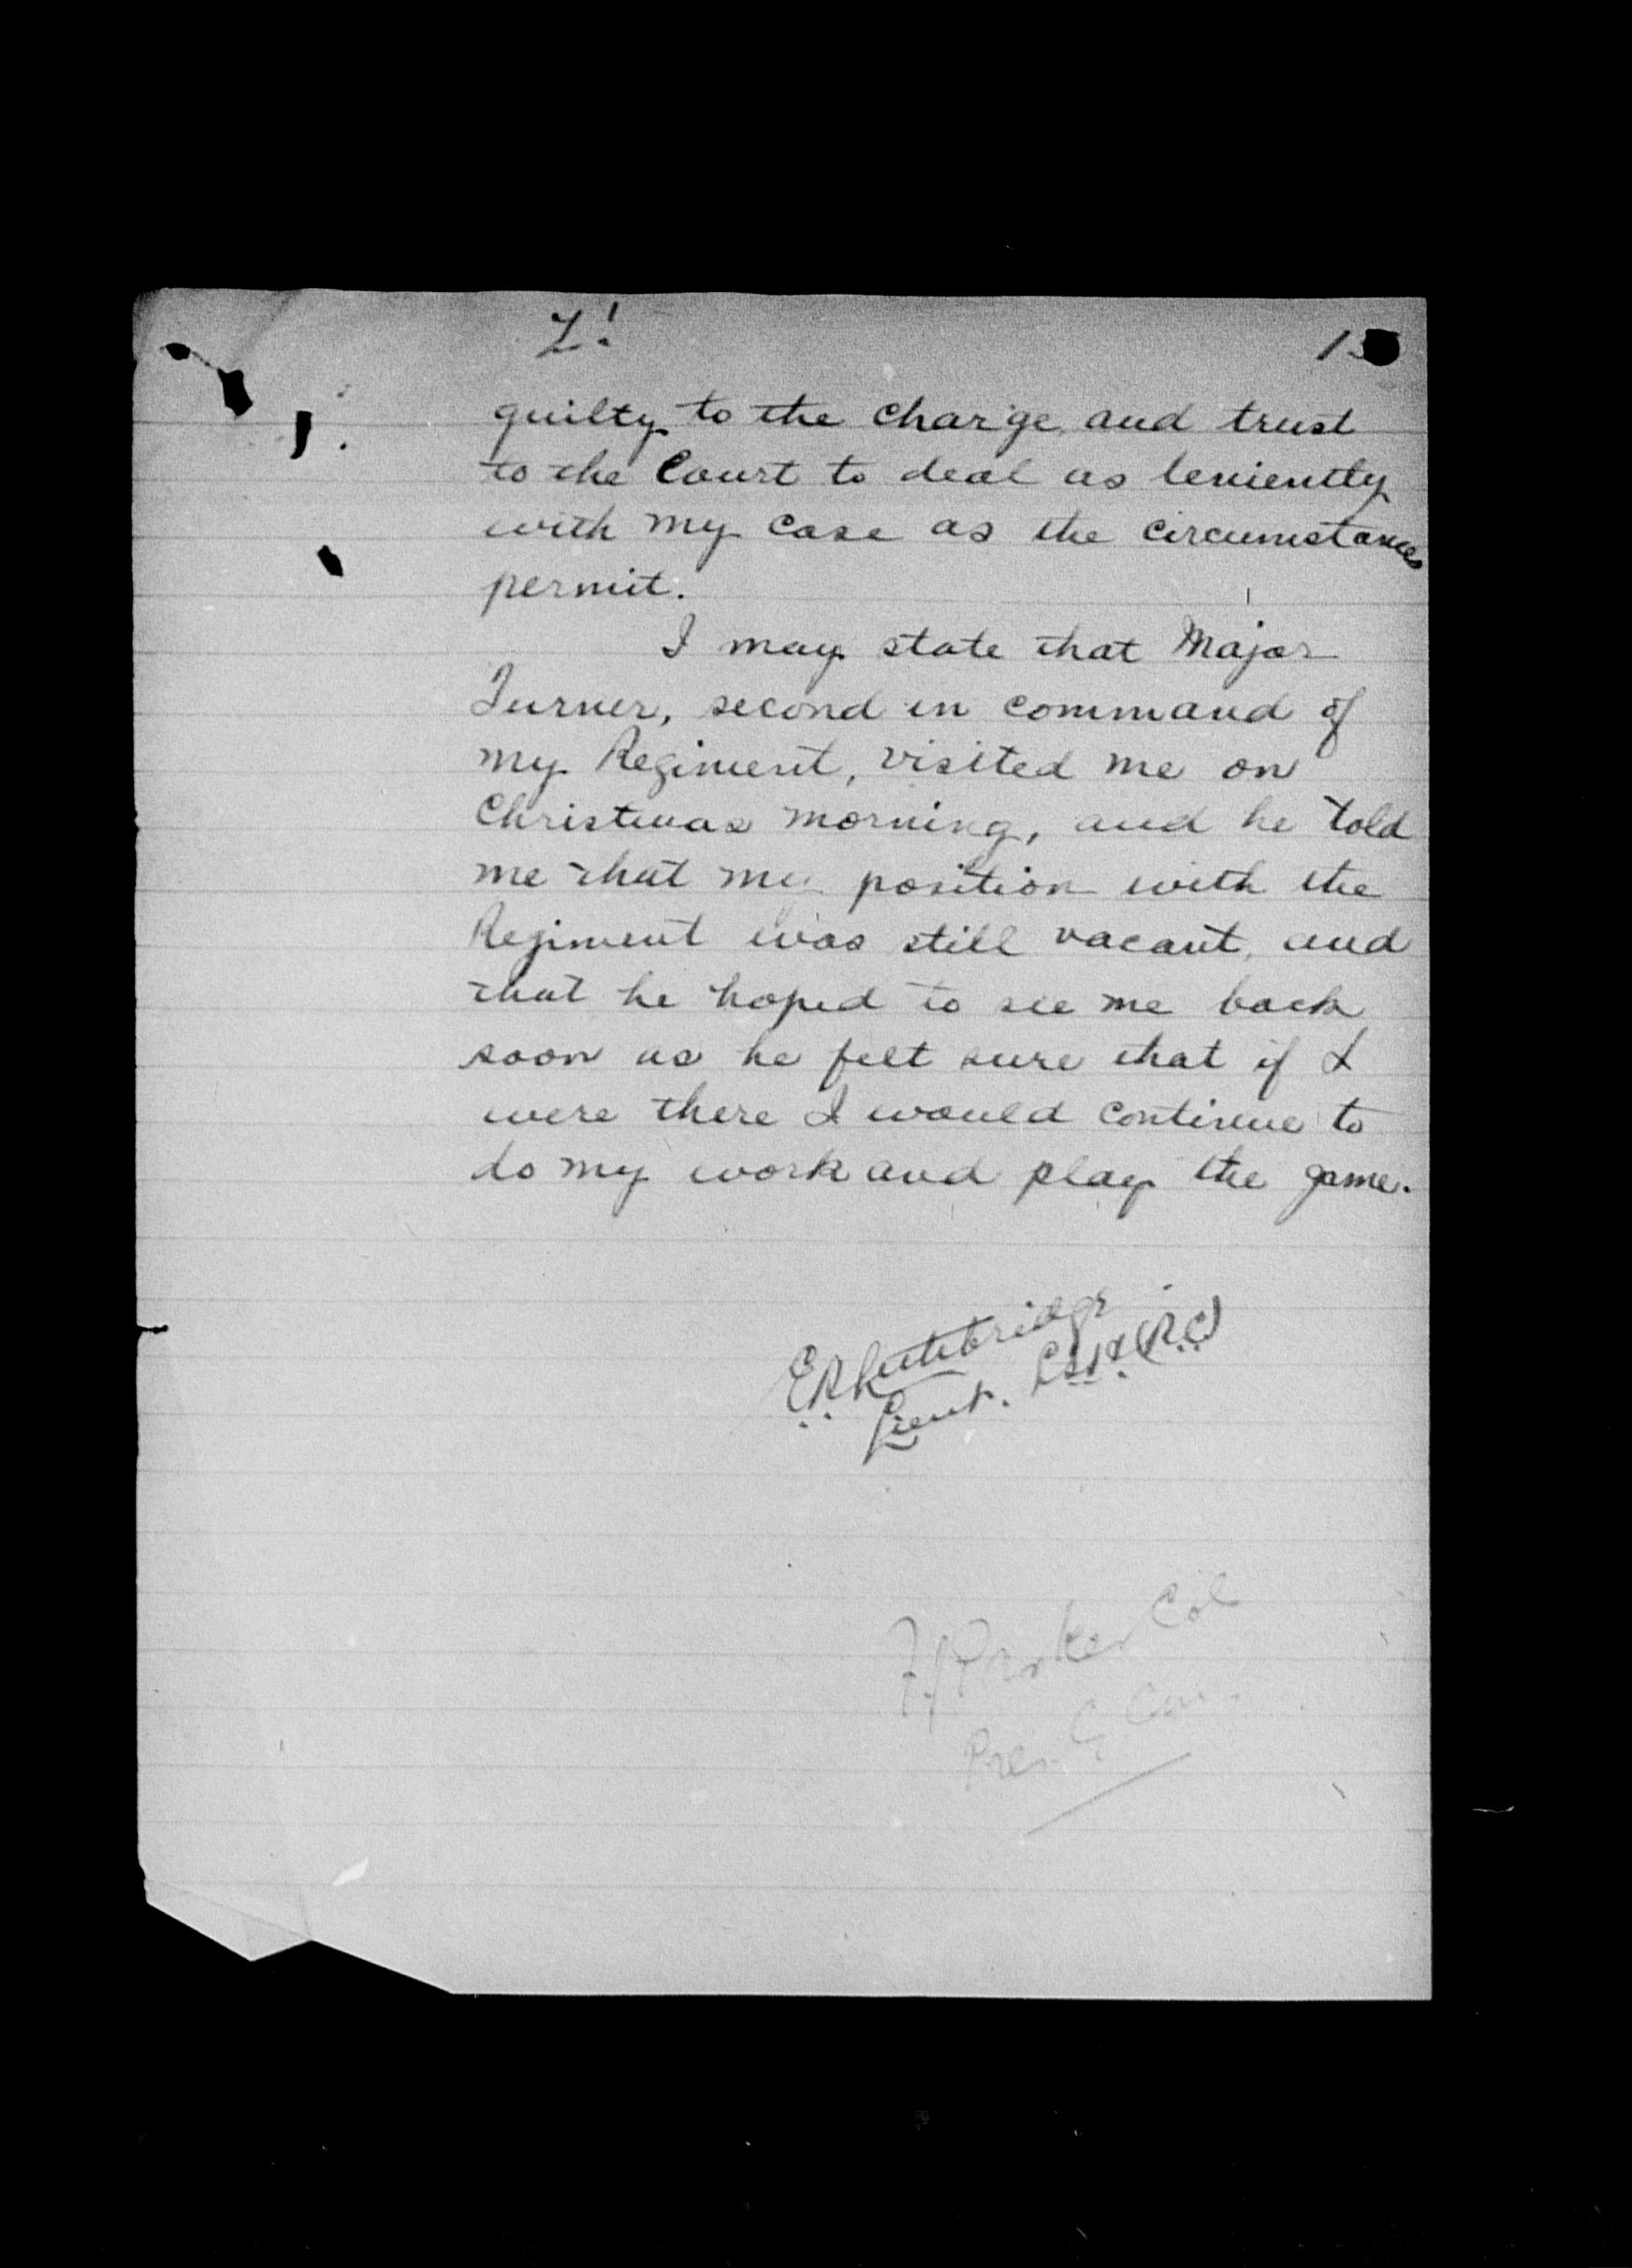 guilty to the charge and trust
to the Court to deal as leniently
with my case as the circumstances
permit.
I may state that Major
Turner, second in command of
my Regiment, visited me on
Christmas morning, and he told
me that my position with the
Regiment was still vacant, and
that he hoped to see me back
soon as he felt sure that if I
were there I would continue to
do my work and play the game.
Lieut. LSH (R.C)
Parker Col
Pres